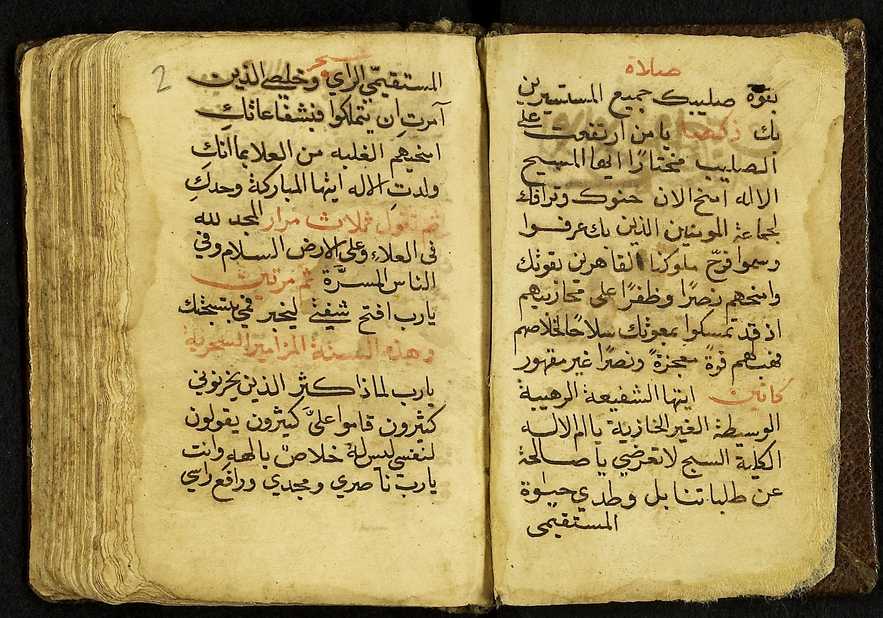 صلاة
بقوة صليبك جميع المستسيرين
بك ذكصا يا من ارتفعت على
الصليب مختارًا ايها المسيح
الاله امنح الان حنوك ورافتك
لجماعة المومنين الذين بك عرفوا
وسموا فرّح ملوكنا القاهرين بقوتك
وامنحهم نصرًا وظفرًا على محاربيهم
اذ قد تمسكوا بمعونتك سلاحًا لخلاصهم
فهب لهم قوةً معجزةً ونصرًا غير مقهور
كانين ايتها الشفيعة الرهيبة
الوسيطة الغير الخازية يا ام الاله
الكلية السبح لا تعرضي يا صالحة
عن طلباتنا بل وطدي حيوة
المستقيمى
سحر
2
المستقيمي الراي وخلصي الذين
آمرتِ ان يتملكوا فبشفاعاتكِ
امنحيهم الغلبه من العلا بما انكِ
ولدتِ الاله ايتها المباركة وحدكِ
ثم تقول ثلاث مرار المجد لله
في العلاء وعلى الارض السلام وفي
الناس المسرَّة ثم مرتين
يارب افتح شفتي ليخبر فمي بتسبحتك
وهذه الستة المزامير السحرية
يارب لماذا كثر الذين يحزنوني
كثيرون قاموا عليَّ كثيرون يقولون
لنفسي ليس له خلاصٌ بالهه وانت
يارب ناصري ومجدي ورافع راسي